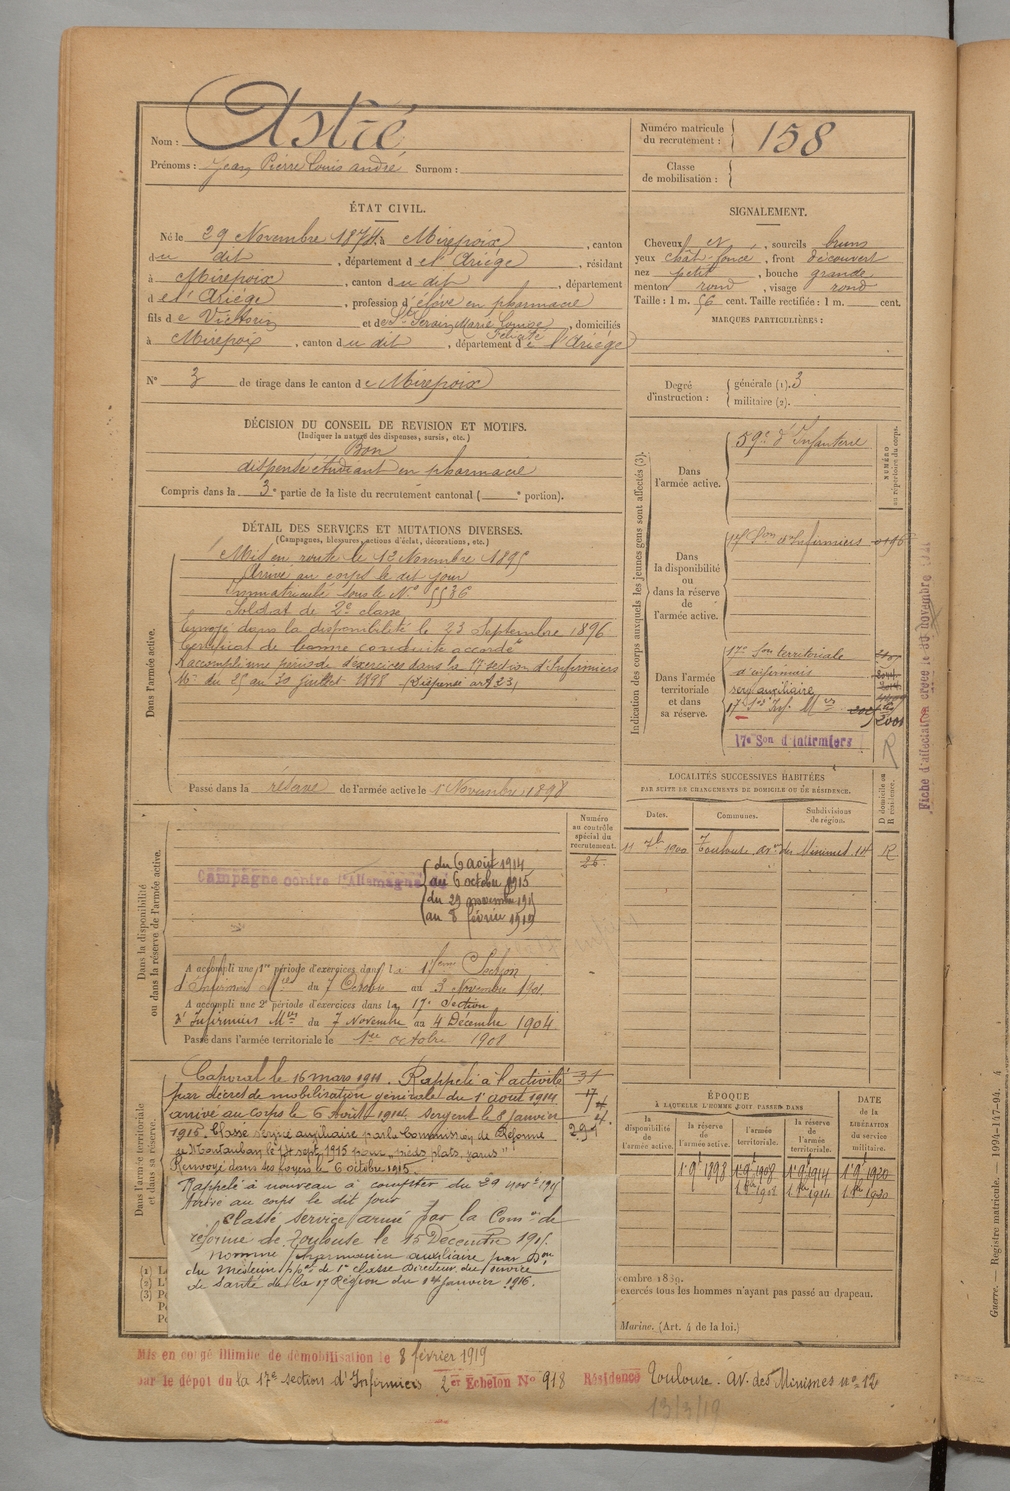 Nom : Astié
Prénoms : Jean Pierre Louis André Surnom :
Numéro matricule du recrutement : 158
Classe de mobilisation :
ÉTAT CIVIL.
Né le 29 Novembre 1874, à Mirepoix, canton
du dit, département de l'Ariège, résidant
à Mirepoix, canton du dit, département
de l'Ariège, profession d'élève en pharmacie
fils de Victorin et de Marie Louise Félicité, domiciliés
à Mirepoix, canton du dit, département de l'Ariège
N° 3 de tirage dans le canton de Mirepoix
SIGNALEMENT.
Cheveux et, sourcils bruns
yeux chât-foncé, front découvert
nez petit, bouche grande
menton rond, visage rond
Taille : 1 m. 56 cent. Taille rectifiée : 1 m. cent.
MARQUES PARTICULIÈRES :
Degré d'instruction : générale (1). 3
militaire (2).
DÉCISION DU CONSEIL DE REVISION ET MOTIFS.
(Indiquer la nature des dispenses, sursis, etc.)
Bon
dispensé étudiant en pharmacie
Compris dans la 3e partie de la liste du recrutement cantonal ( e portion).
DÉTAIL DES SERVICES ET MUTATIONS DIVERSES.
(Campagnes, blessures, actions d'éclat, décorations, etc.)
Dans l'armée active.
Mis en route le 12 Novembre 1895
Arrivé au corps le dit jour
Immatriculé sous le N° 5536
Soldat de 2e classe
Envoyé dans la disponibilité le 23 Septembre 1896
Certificat de bonne conduite accordé
A accompli une période d'exercices dans la 17e section d'Infirmiers
Mres du 25 au 30 Juillet 1898 (Dispensé art 23)
Passé dans la réserve de l'armée active le 1er Novembre 1898
Indication des corps auxquels les jeunes gens sont affectés (3).
NUMÉRO au répertoire du corps.
Dans l'armée active.
59e d'Infanterie
Dans la disponibilité ou dans la réserve de l'armée active.
17e Son d'Infirmiers 0196
Dans l'armée territoriale et dans sa réserve.
17e Son territoriale
d'infirmiers
serv auxiliaire
17e Son Inf. Mres
2001
17e Son d'Infirmiers
R
Fiche d'affectation créée le 30 novembre
LOCALITÉS SUCCESSIVES HABITÉES
PAR SUITE DE CHANGEMENTS DE DOMICILE OU DE RÉSIDENCE.
Dates. Communes. Subdivisions de région. D domicile ou R résidence.
11 7bre 1900 Toulouse av. des Minimes 14 R
Numéro au contrôle spécial du recrutement.
26
Dans la disponibilité ou dans la réserve de l'armée active.
Campagne contre l'Allemagne
du 6 août 1914
au 6 octobre 1915
du 29 novembre 1915
au 8 février 1919
A accompli une 1re période d'exercices dans la 17eme Section
d'Infirmiers Mres du 7 Octobre au 3 Novembre 1901
A accompli une 2e période d'exercices dans la 17e Section
d'Infirmiers Mres du 7 Novembre au 4 Décembre 1904
Passé dans l'armée territoriale le 1er octobre 1908
Dans l'armée territoriale et dans sa réserve.
Caporal le 16 mars 1911. Rappelé à l'activité
par décret de mobilisation générale du 1er août 1914
arrivé au corps le 6 Août 1914. Sergent le 8 janvier
1915. Classé service auxiliaire par la Commission de Réforme
de Montauban le 14 sept 1915 pour "pieds plats, varus"
Renvoyé dans ses foyers le 6 octobre 1915.
Rappelé à nouveau à compter du 29 novbre 1915
Arrivé au corps le dit jour
Classé service armé par la Comon de
réforme de Toulouse le 15 Décembre 1915.
Nommé pharmacien auxiliaire par Don
du médecin ppal de 1re classe Directeur du Service
de Santé de la 17 Région du 1er janvier 1916.
ÉPOQUE
À LAQUELLE L'HOMME DOIT PASSER DANS
DATE de la LIBÉRATION du service militaire.
la disponibilité de l'armée active. la réserve de l'armée active. l'armée territoriale. la réserve de l'armée territoriale.
1er 9bre 1898 1er 9bre 1908 1er 9bre 1914 1er 9bre 1920
1er 8bre 1908 1er 8bre 1914 1er 8bre 1920
(1)
(2)
(3)
cembre 1889.
exercés tous les hommes n'ayant pas passé au drapeau.
Marine. (Art. 4 de la loi.)
Mis en congé illimité de démobilisation le 8 février 1919
par le dépôt du la 17e section d'Infirmiers 2e Echelon N° 918 Résidence Toulouse. av. des Minimes n° 12
13/3/19
Guerre. — Registre matricule. — 1994-147-94.